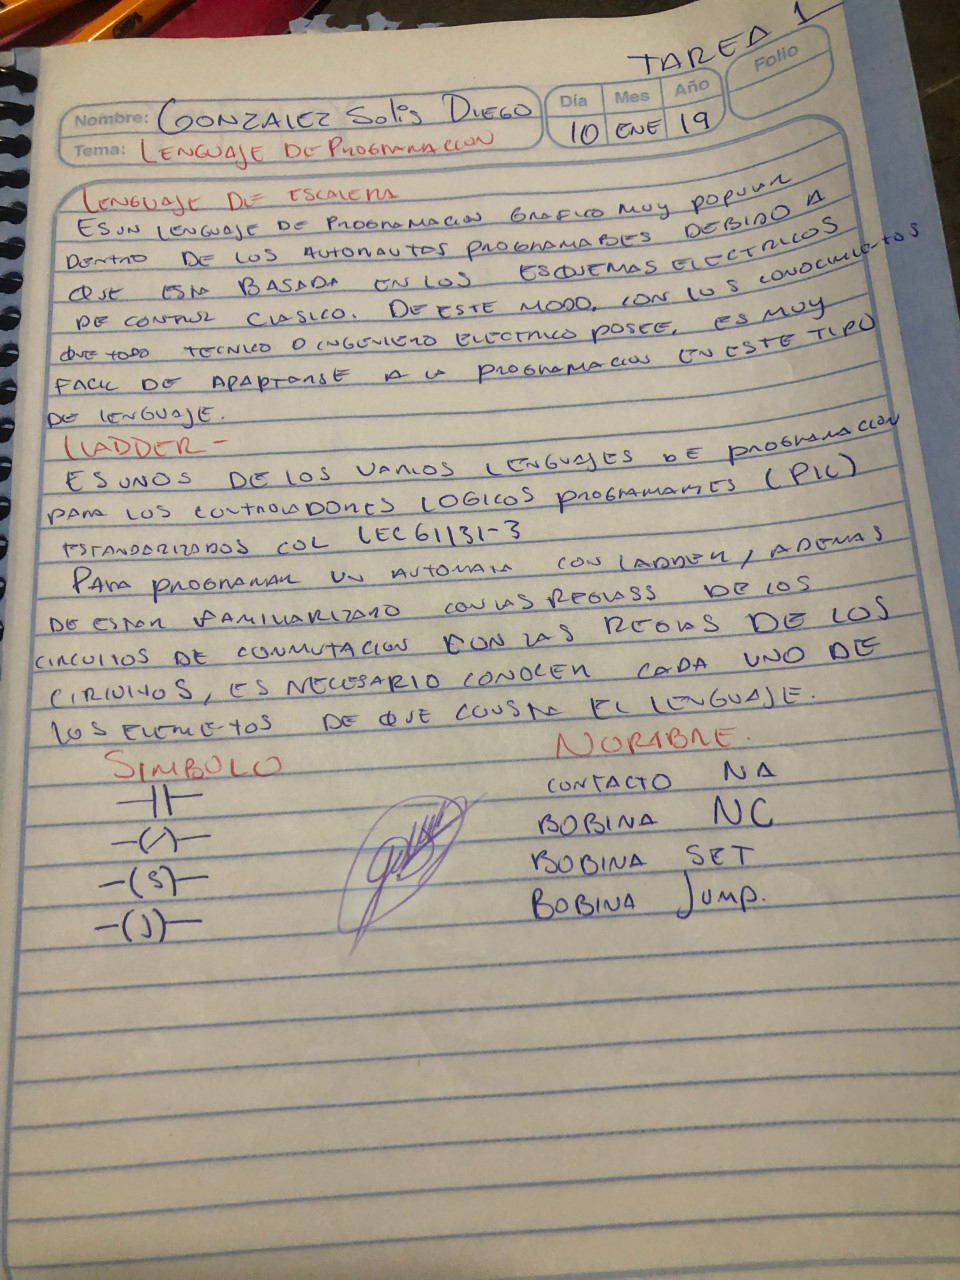 TAREA 1
Nombre: GONZALEZ Solis DIEGO Día Mes Año Folio
10 ENE 19
Tema: LENGUAJE DE PROGRAMACION
LENGUAJE DE ESCALERA
ES UN LENGUAJE DE PROGRAMACION GRAFICO MUY POPULAR
DENTRO DE LOS AUTOMATAS PROGRAMABLES DEBIDO A
QUE ESTA BASADA EN LOS ESQUEMAS ELECTRICOS
DE CONTROL CLASICO. DE ESTE MODO, CON LOS CONOCIMIENTOS
QUE TODO TECNICO O INGENIERO ELECTRICO POSEE, ES MUY
FACIL DE ADAPTARSE A LA PROGRAMACION EN ESTE TIPO
DE LENGUAJE.
LLADDER -
ES UNOS DE LOS VARIOS LENGUAJES DE PROGRAMACION
PARA LOS CONTROLADORES LOGICOS PROGRAMABLES (PLC)
ESTANDARIZADOS COL LEC 61131-3
PARA PROGRAMAR UN AUTOMATA CON LADDER, ADEMAS
DE ESTAR FAMILIARIZADO CON LAS REGLASS DE LOS
CIRCUITOS DE CONMUTACION CON LAS REGLAS DE LOS
CIRCUITOS, ES NECESARIO CONOCER CADA UNO DE
LOS ELEMENTOS DE QUE CONSTA EL LENGUAJE.
SIMBOLO NOMBRE.
CONTACTO NA
-(/)- BOBINA NC
-(S)- BOBINA SET
-(J)- BOBINA Jump.